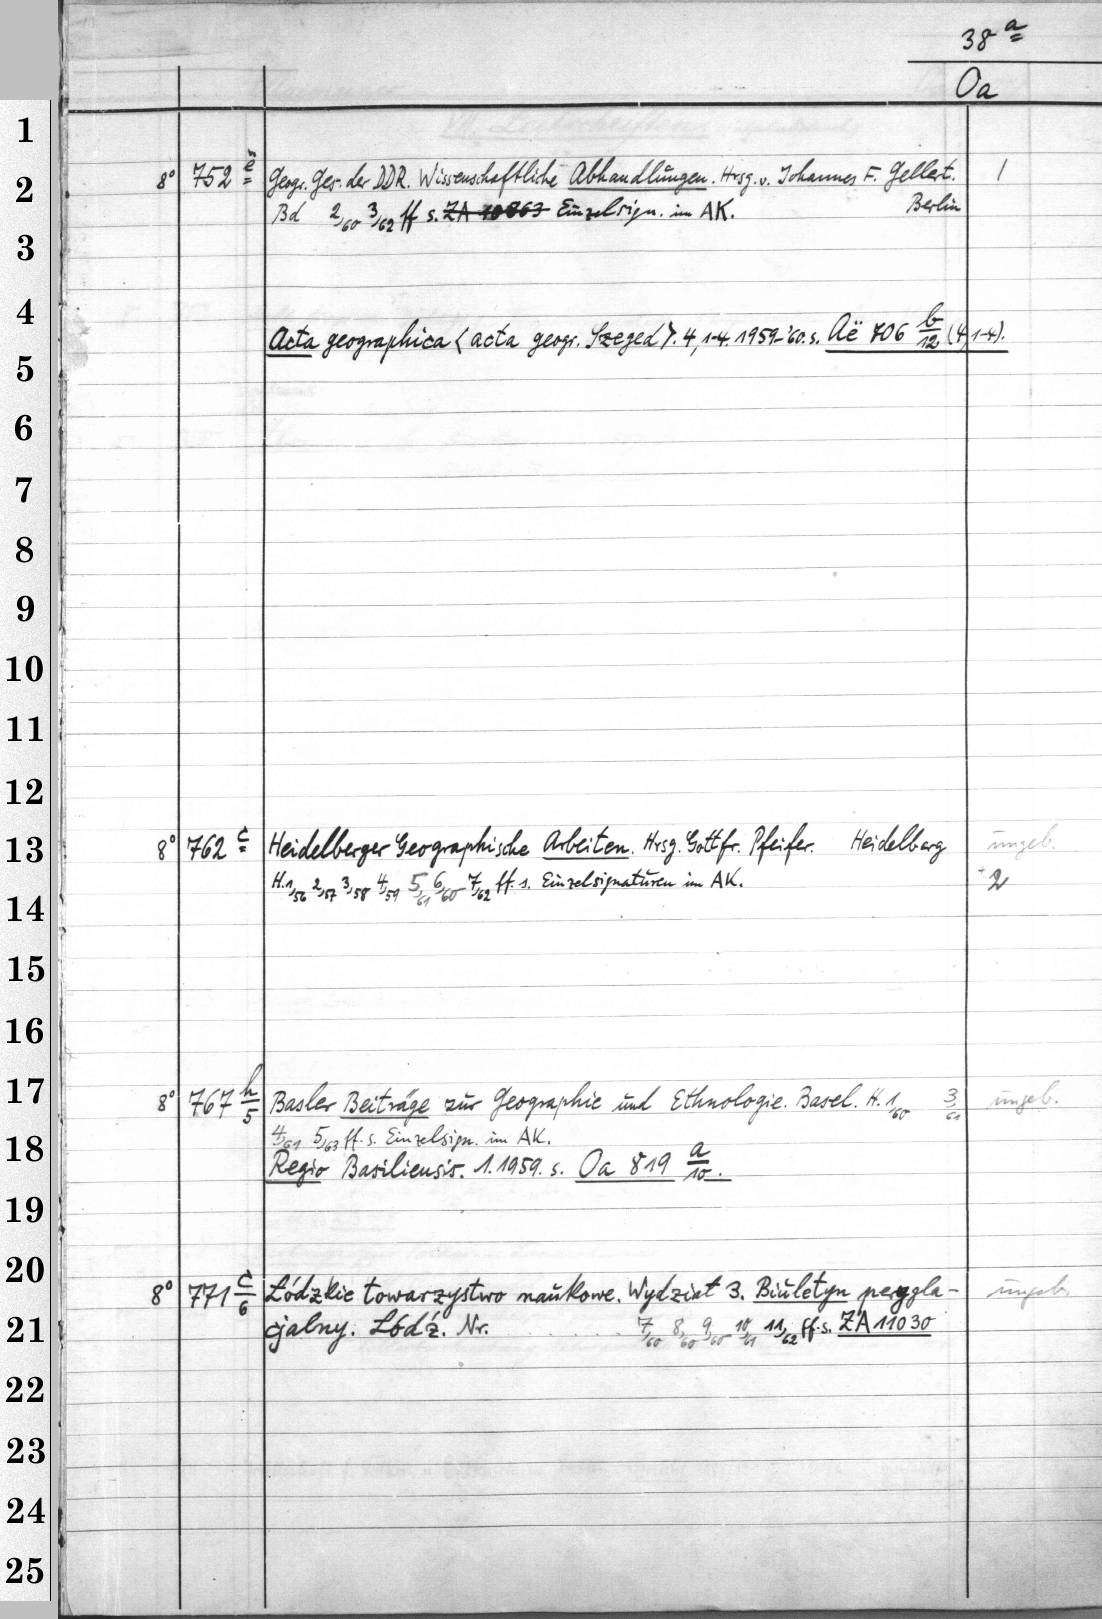 38 a
Oa
1
2
3
4
5
6
7
8
9
10
11
12
13
14
15
16
17
18
19
20
21
22
23
24
25
8° 752 ë Geogr. Ges. der DDR. Wissenschaftliche Abhandlungen. Hrsg. v. Johannes F. Gellert. 1
Bd 2/60 3/62 ff s. ZA 10863 Einzelsign. im AK. Berlin
Acta geographica <acta geogr. Szeged>. 4,1-4. 1959-'60. s. Aë 706 b/12 (4,1-4).
8° 762 c Heidelberger Geographische Arbeiten. Hrsg. Gottfr. Pfeifer. Heidelberg ungeb.
H. 1/56 2/57 3/58 4/59 5/61 6/60 7/62 ff. s. Einzelsignaturen im AK. + 2
8° 767 h/5 Basler Beiträge zur Geographie und Ethnologie. Basel. H. 1/60 3/61 ungeb.
4/61 5/63 ff. s. Einzelsign. im AK.
Regio Basiliensis. 1. 1959. s. Oa 819 a/10.
8° 771 c/6 Łódzkie towarzystwo naukowe. Wydział 3. Biuletyn perygla- ungeb.
cjalny. Łódź. Nr. 7/60 8/60 9/60 10/61 11/62 ff. s. ZA 11030